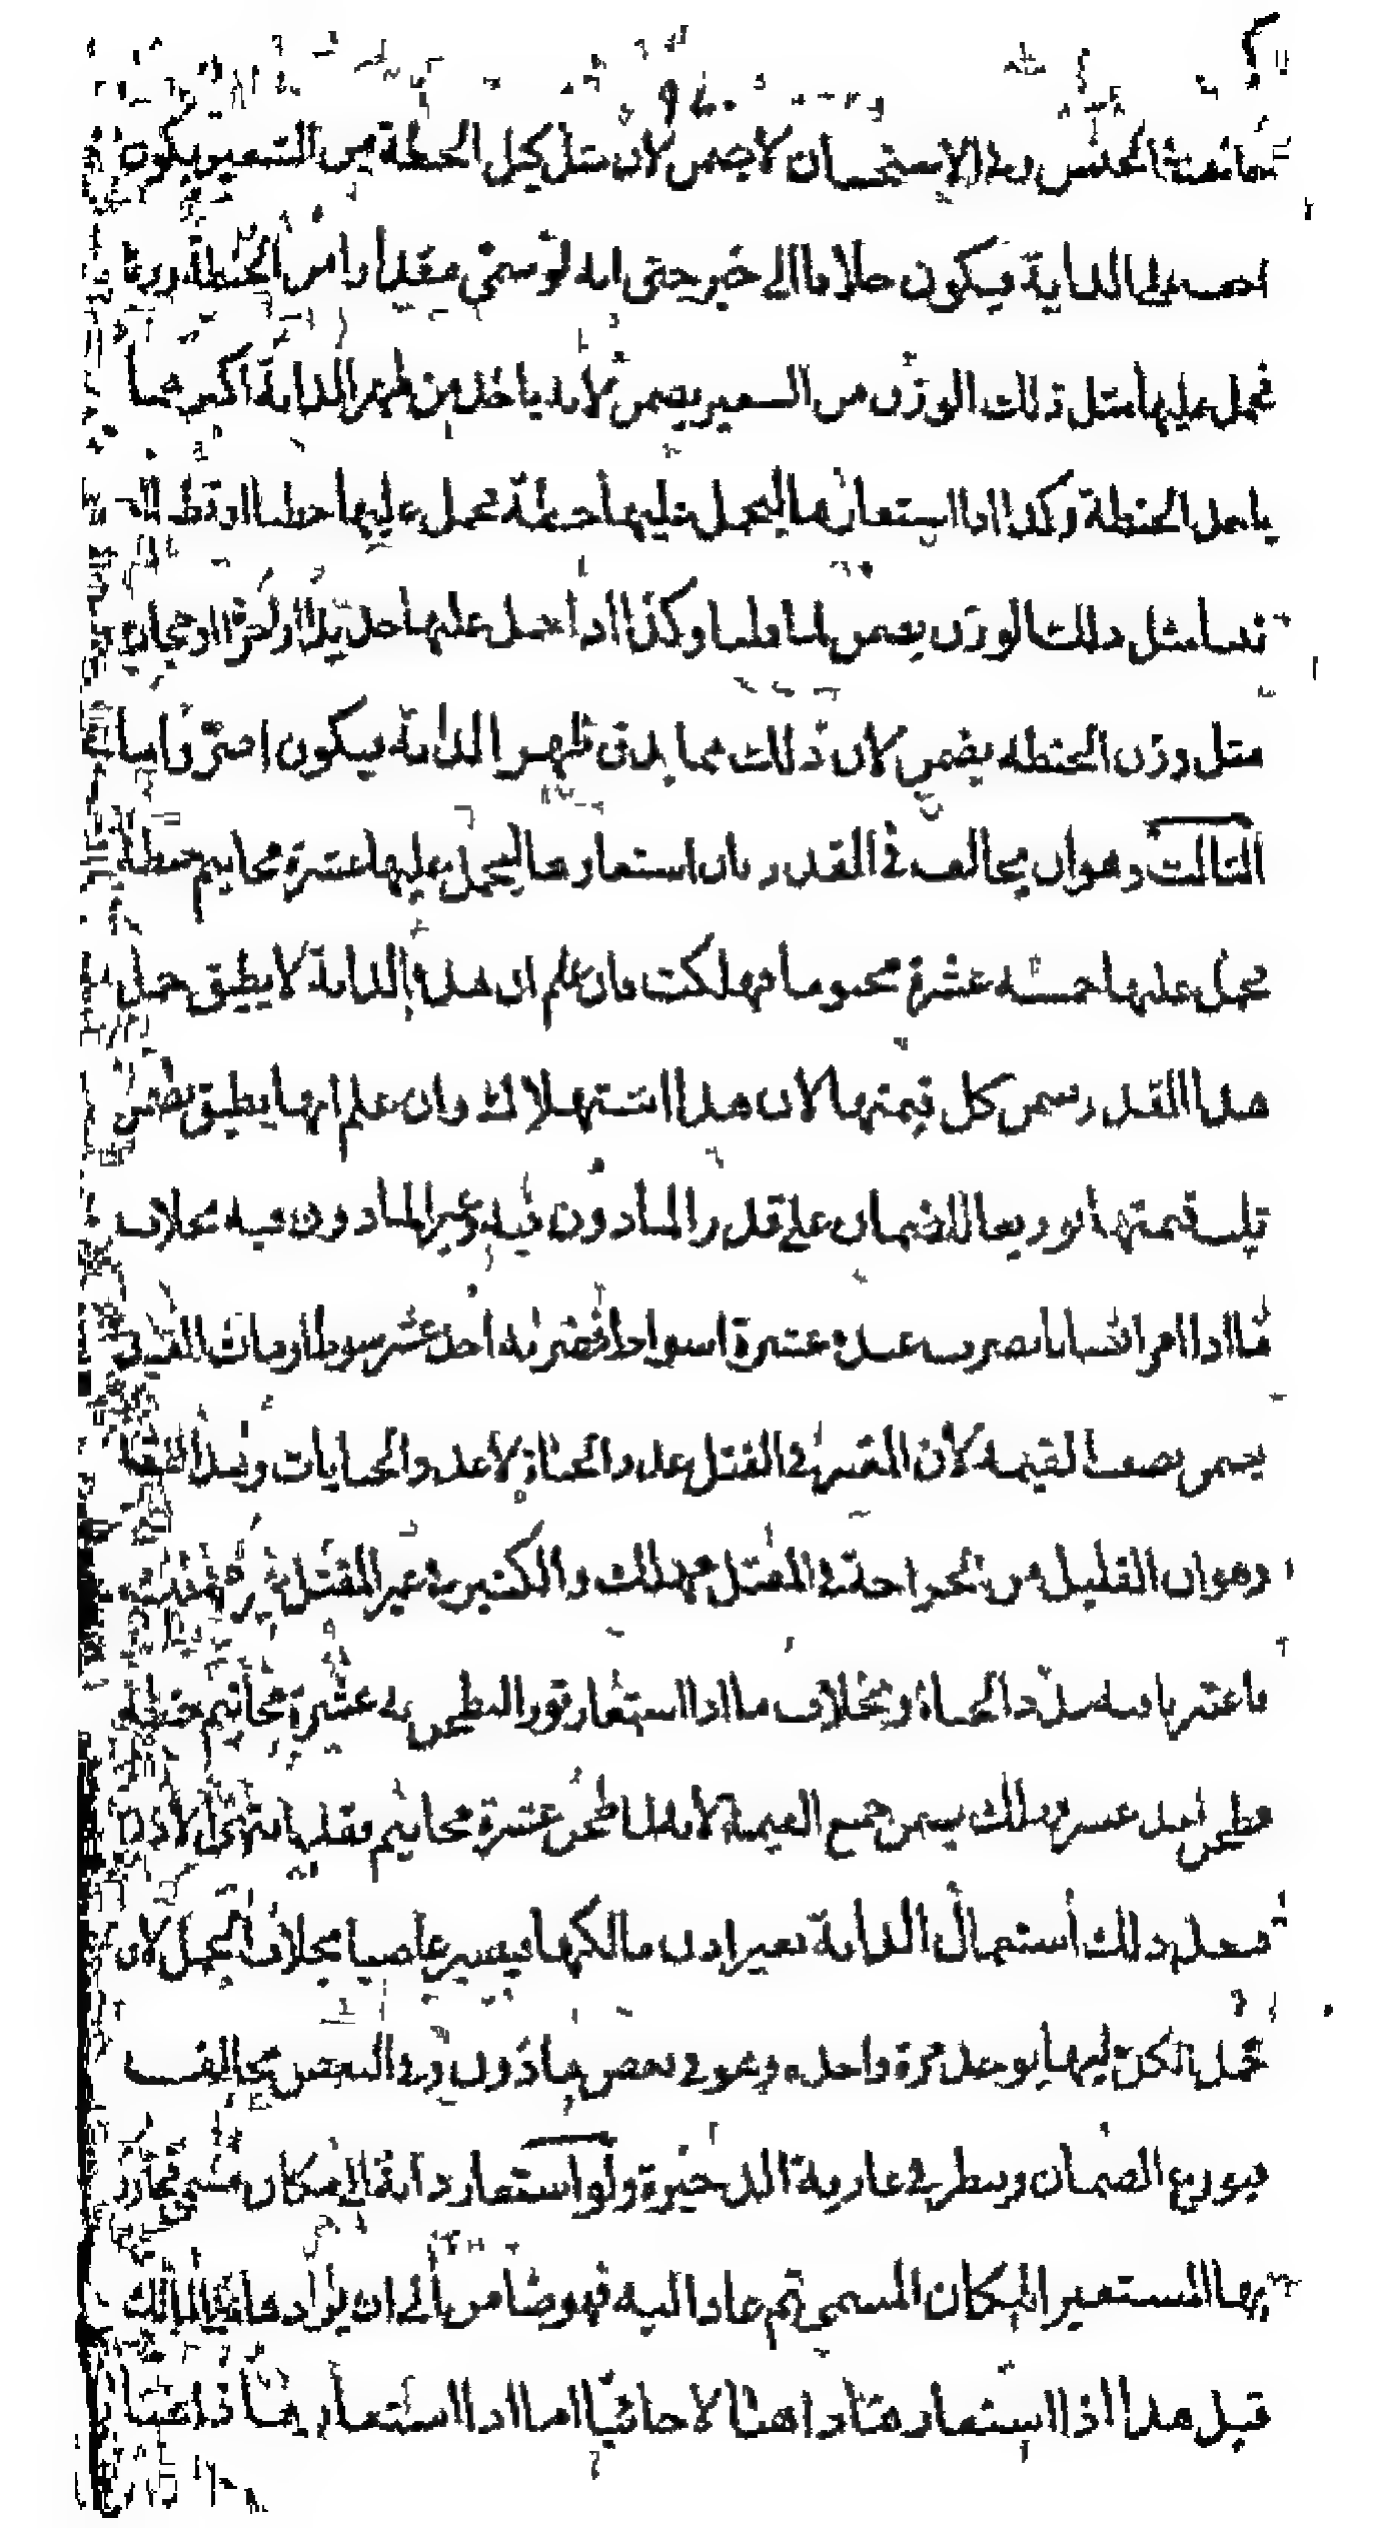 مما يعتبر الجنس وفي الاستحسان لا يضمن لان مثل كيل الحنطة من الشعير يكون
اخف على الدابة فيكون خلافا الى خير حتى انه لو سمى مقدارا من الحنطة وزنا
فحمل عليها مثل ذلك الوزن من الشعير يضمن لانه ياخذ من ظهر الدابة اكثر مما
ياخذ الحنطة وكذا اذا استعارها ليحمل عليها حنطة فحمل عليها حطبا او قطنا او
تبنا مثل ذلك الوزن يضمن لما قلنا وكذا اذا حمل عليها حديدا او اجرا او حجارة
مثل وزن الحنطة يضمن لان ذلك مما يدق ظهر الدابة فيكون اضر واما
الثالث وهو ان يخالف في القدر بان استعارها ليحمل عليها عشرة مخاتيم حنطة
فحمل عليها خمسة عشر مختوما فهلكت فان علم ان هذه الدابة لا يطيق حمل
هذا القدر يضمن كل قيمتها لان هذا استهلاك وان علم انها يطيق يضمن
ثلث قيمتها توزيعا للضمان على قدر الماذون فيه وغير الماذون فيه بخلاف
ما اذا امر انسانا بضرب عبده عشرة اسواط فضربه احد عشر سوطا فمات العبد
يضمن نصف القيمة لان المعتبر في القتل عدد الجناة لا عدد الجنايات
وهو ان القليل من الجراحة في القتل مهلك والكثير منه غير القتل غير مهلك
فاعتبرنا فيه عدد الجناة وبخلاف ما اذا استعار ثورا ليطحن به عشرة مخاتيم حنطة
فطحن احد عشر فهلك يضمن جميع القيمة لانه لما طحن عشرة مخاتيم فقد انتهى الاذن
فبعد ذلك استعمال الدابة بغير اذن مالكها فيصير غاصبا بخلاف الحمل لان
حمل الكل عليها يوجد مرة واحدة وهو في بعض ماذون وفي البعض مخالف
فيوزع الضمان وينظر في عارية الذخيرة ولو استعار دابة الى مكان مسمى فجاوز
بها المستعير المكان المسمى ثم عاد اليه فهو ضامن الى ان يردها على المالك
قيل هذا اذا استعارها ذاهبا لا جائيا اما اذا استعارها ذاهبا